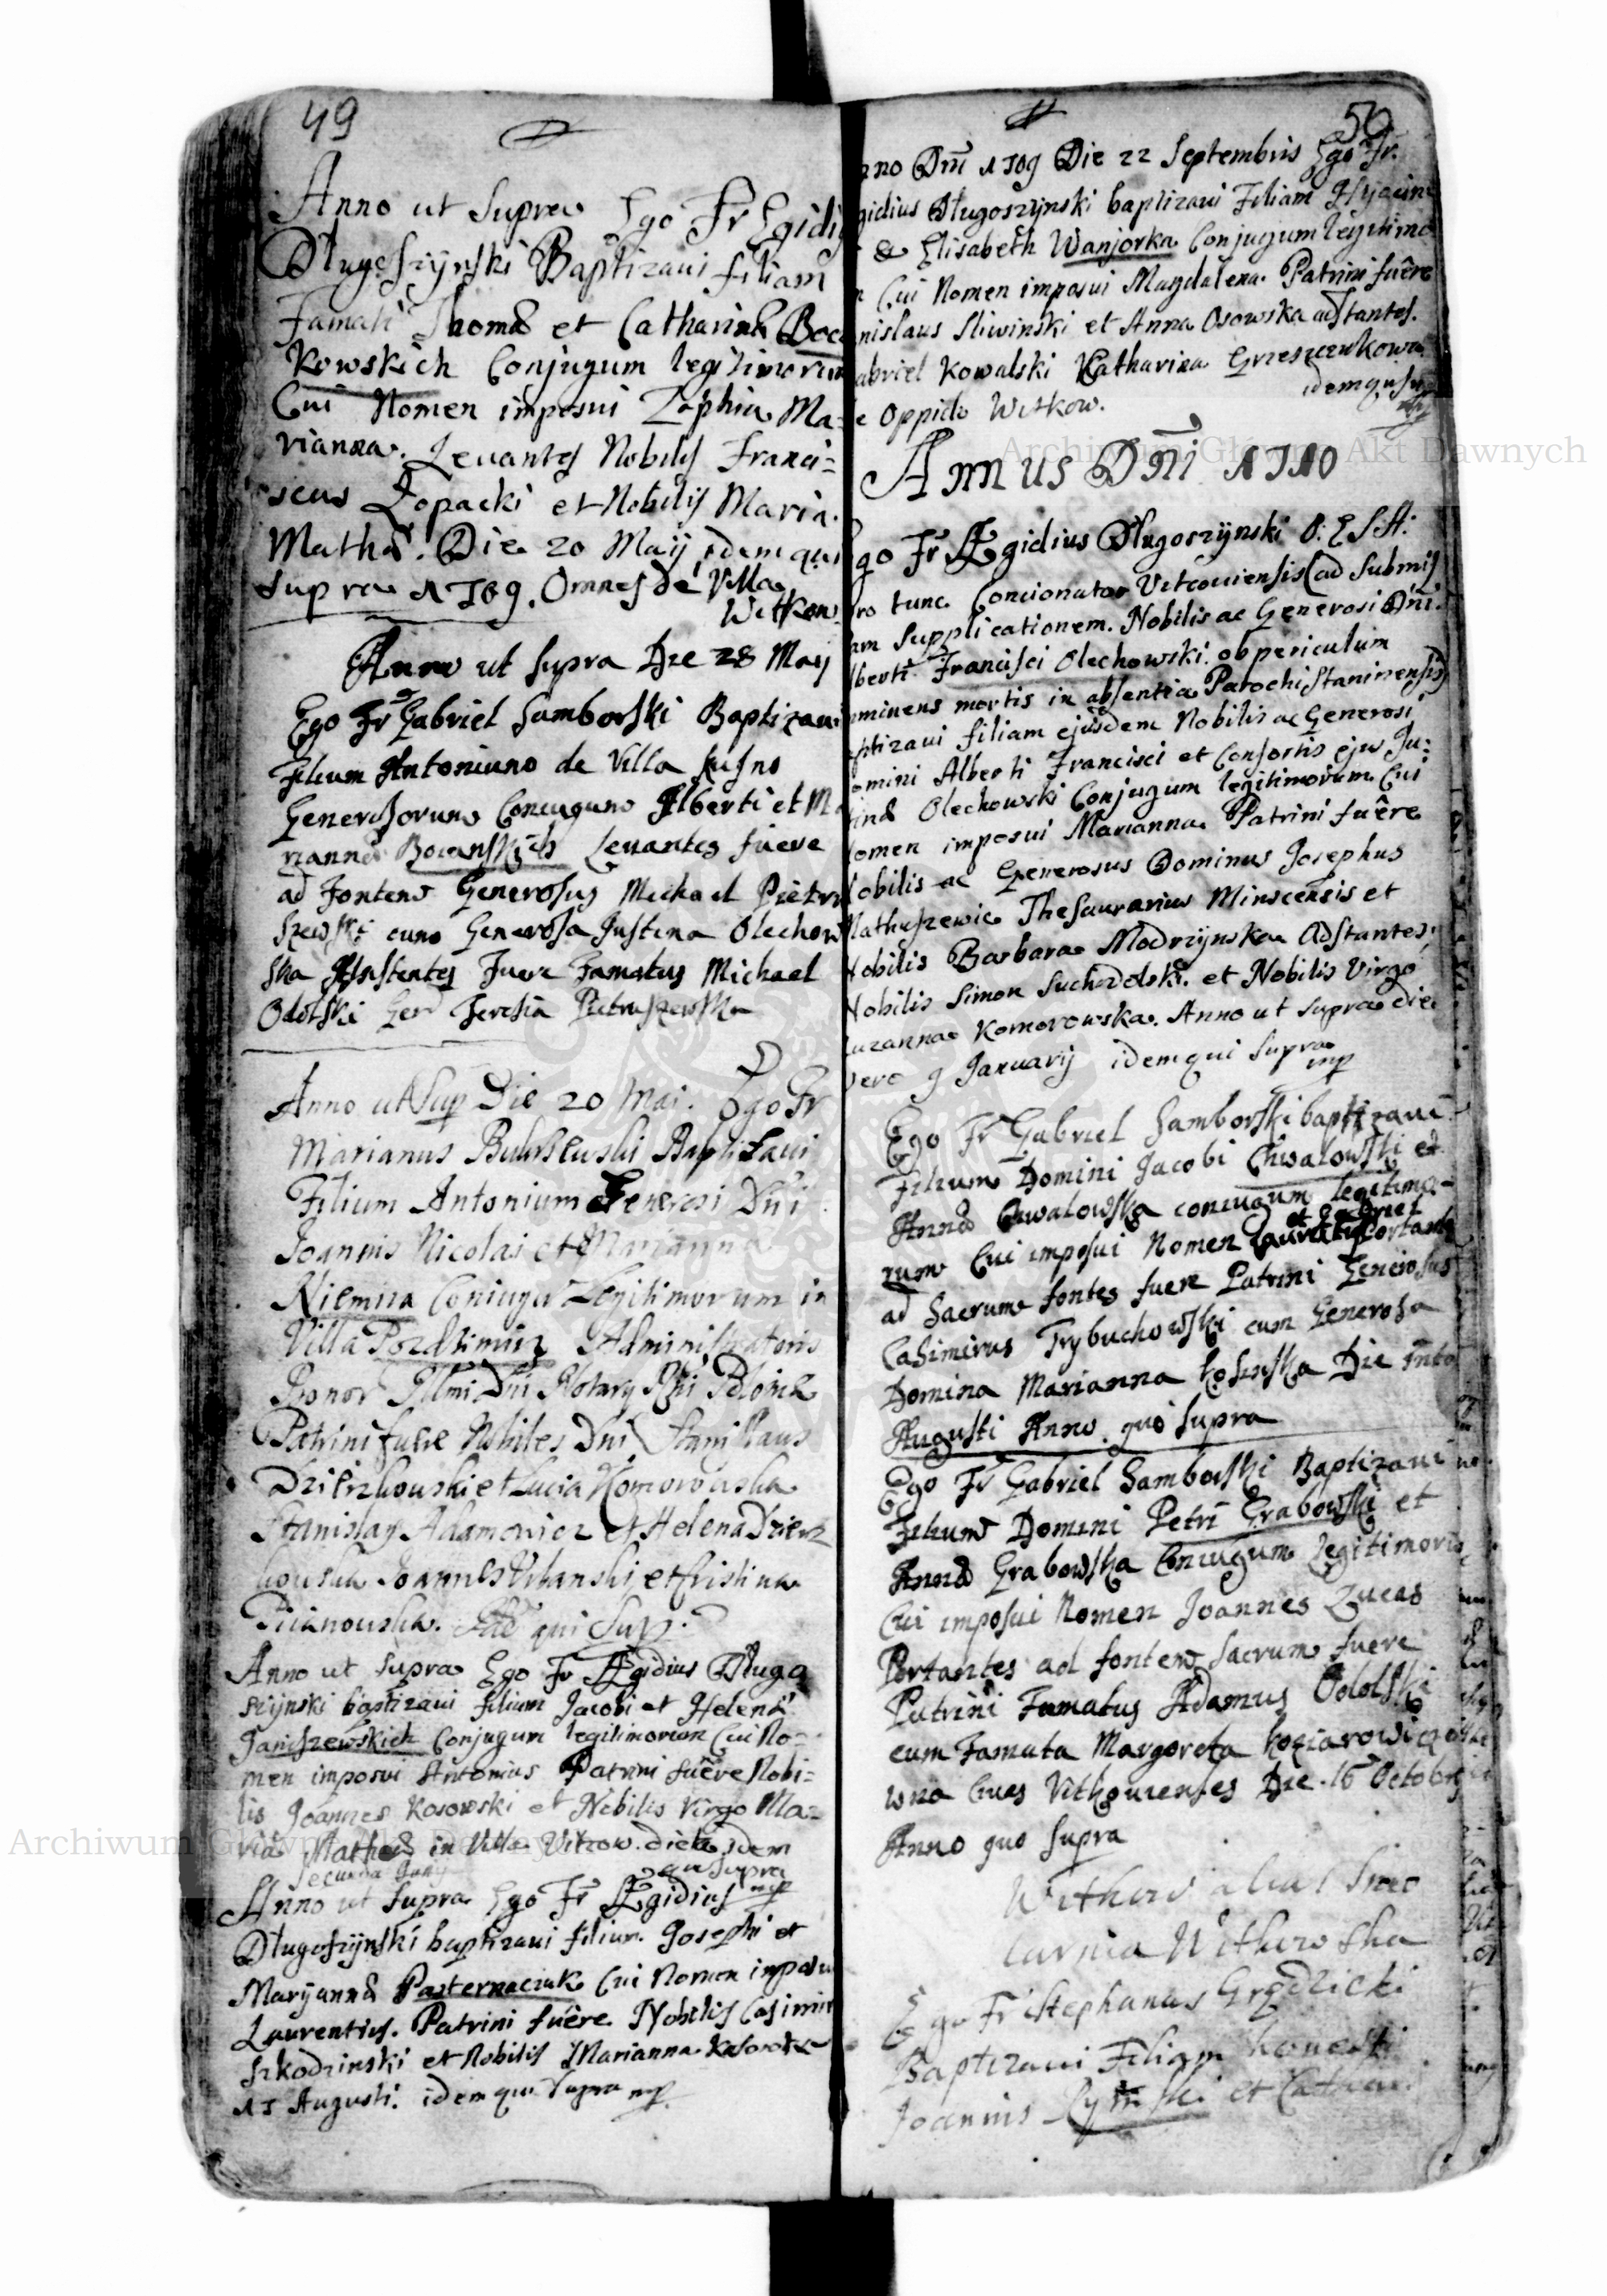 49
Anno ut Supra Ego Fr Egidi
Długoszijnski Baptizaui filiam
Famati Thomæ et Catharinæ Boc
Kowskich Conjugum legitimorum
Cui Nomen imposui Zophia Ma=
rianna. Leuantes Nobilis Franci=
scus Łopacki et Nobilis Maria
Mathæ. Die 20 Maij idem qui
supra 1709. Omnes de Villa
Witkow
Anno ut supra Die 28 May
Ego Fr Gabriel Samborski Baptizaui
Filium Antonium de Villa
Generosorum Coniugum Alberti et Ma
riannæ Leuantes fuere
ad Fontem Generosus Michael Pietru
szewski cum Generosa Justina Olechow
ska Assistentes Fuere Famatus Michael
Odolski Teresia Pietruszewska
Anno ut Sup Die 20 Mai. Ego Fr
Marianus Baptisaui
Filium Antonium Generosi Dni
Joannis Nicolai et Marianna
Niemira Coniugū Legitimorum in
Villa Administratoris
Bonor Illmi Dni Notary
Patrini fuere Nobiles Dni Stanislaus
Dzierzkouski et Lucia Komorowska
Stanislaus Adamowicz et Helena Dzierz
kouska Joannes et Cristina
qui Sup.
Anno ut supra Ego Fr Ægidius Długo
szijnski baptizaui filium Jacobi et Helenæ
Janiszewskich Conjugum legitimorum Cui No=
men imposui Antonius Patrini fuêre Nobi=
lis Joannes Kosowski et Nobilis Virgo Ma=
ria Mathæ in Villa Vitkow. die idem
secunda Junij qui supra
mp
Anno ut supra Ego Fr Ægidius
Długoszijnski baptizaui filium Josephi et
Marijannæ Pasternaciuk Cui Nomen imposu
Laurentius. Patrini fuêre Nobilis Casimir
Szkodzinski et Nobilis Marianna Kosowska
15 Augusti. idem qui supra mp.
50
nno Dni 1709 Die 22 Septembris Ego Fr.
gidius Długoszijnski baptizaui Filiam Hyacin
i & Elisabeth Wanjorka Conjugum legitimo
m Cui Nomen imposui Magdalena. Patrini fuêre
nislaus Sliwinski et Anna Osowska adstantes.
abriel Kowalski Katharina Grzeszczukowa
e Oppido Witkow. idem qui sup
mp
Annus Dni 1710
Ego Fr Ægidius Długoszijnski O. E S A:
ro tunc Concionator Vitcouiensis (ad submis
am supplicationem. Nobilis ac Generosi Dni.
lberti Francisci Olechowski. ob periculum
mminens mortis in absentia Parochi Staninensis)
aptizaui filiam ejusdem Nobilis ac Generosi
omini Alberti Francisci et Consortis ejus Ju=
tinæ Olechowski Conjugum legitimorum. Cui
Nomen imposui Marianna. Patrini fuêre
Nobilis ac Generosus Dominus Josephus
Mathuszewic Thesaurarius Minscensis et
Nobilis Barbara Modrzijnska Adstantes:
Nobilis Simon Suchodolski. et Nobilis Virgo
uzanna Komorowska. Anno ut supra die
vero 9 Januarij idem qui supra
mp
Ego Fr Gabriel Samborski baptizaui
Filium Domini Jacobi Chwalowski et
Annæ Chwalowska coniugum legitimo-
rum Cui imposui Nomen et Gabriel Portantes
ad Sacrum fontes fuere Patrini Generosus
Casimirus Trybuchowski cum Generosa
Domina Marianna Kosinska Die
Augusti Anno quo supra
Ego Fr Gabriel Samborski Baptizaui
Filium Domini Petri Grabowski et
Annæ Grabowska Coniugum Legitimoru
Cui imposui Nomen Joannes Lucas
Portantes ad fontem Sacrum fuere
Patrini Famatus Adamus Odolski
cum Famata Margareta Koziarowiczo
wna Ciues Vithouienses Die 16 Octobris
Anno quo supra
Withow
Withowska
Ego Fr Stephanus Grądzicki
Baptizaui Filiam honesti
Joannis et Cathari
Archiwum Główne Akt Dawnych
Archiwum Główne Akt Dawnych